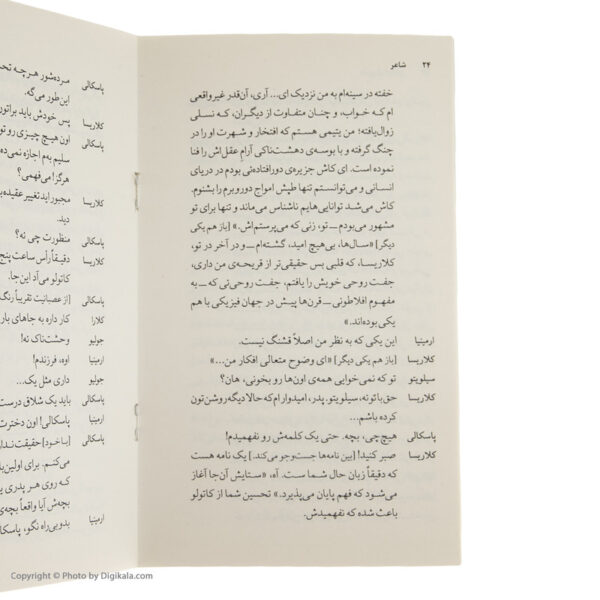 ۲۴ شاعر
خفته در سینه‌ام به من نزدیک ای... آری، آن‌قدر غیرواقعی
ام که خواب، و چنان متفاوت از دیگران، که نسلی
زوال‌یافته؛ من یتیمی هستم که افتخار و شهرت او را در
چنگ گرفته و با بوسه‌ی دهشت‌ناکی آرامِ عقل‌اش را فنا
نموده است. ای کاش جزیره‌ی دورافتاده‌ئی بودم در دریای
انسانی و می‌توانستم تنها طپش امواج دوروبرم را بشنوم.
کاش می‌شد توانایی‌هایم ناشناس می‌ماند و تنها برای تو
مشهور می‌بودم ــ تو، زنی که می‌پرستم‌اش.» [باز هم یکی
دیگر] «سال‌ها، بی‌هیچ امید، گشته‌ام ــ و در آخر در تو،
کلاریسا، که قلبی بس حقیقی‌تر از قریحه‌ی من داری،
جفت روحی خویش را یافتم، جفت روحی‌ئی که ــ به
مفهوم افلاطونی ــ قرن‌ها پیش در جهان فیزیکی با هم
یکی بوده‌اند.»
ارمینیا این یکی که به نظر من اصلاً قشنگ نیست.
کلاریسا [باز هم یکی دیگر] «ای وضوح متعالی افکار من...»
سیلویتو تو که نمی‌خوایی همه‌ی اون‌ها رو بخونی، هان؟
کلاریسا حق با توئه، سیلویتو. پدر، امیدوار ام که حالا دیگه روشن‌تون
کرده باشم...
پاسکالی هیچ‌چی، بچه. حتی یک کلمه‌ش رو نفهمیدم!
کلاریسا صبر کنید! [بین نامه‌ها جست‌وجو می‌کند.] یک نامه هست
که دقیقاً زبان حال شما ست. آه، «ستایش آن‌جا آغاز
می‌شود که فهم پایان می‌پذیرد.» تحسین شما از کاتولو
باعث شده که نفهمیدش.
پاسکالی مرده‌شور هر چه تحـ
این‌طور می‌گه.
کلاریسا پس خودش باید براتون
پاسکالی اون هیچ چیزی رو تو
سلیم بهم اجازه نمی‌ده
هرگز! می‌فهمی؟
کلاریسا مجبور اید تغییر عقیده بـ
دید.
پاسکالی منظورت چی ئه؟
کلاریسا دقیقاً رأس ساعت پنج
کاتولو می‌آد این‌جا.
پاسکالی [از عصبانیت تقریباً رنگ
کلارا کار داره به جاهای بار
جولیو وحشت‌ناک ئه!
ارمینیا اوه، فرزندم!
جولیو داری مثل یک...
پاسکالی باید یک شلاق درست
ارمینیا پاسکالی! اون دخترت
پاسکالی [با خود] حقیقت ندار
می‌کنم. برای اولین‌با
که روی هر پدری یـ
بچه‌ش آیا واقعاً بچه‌ی
ارمینیا بدوبی‌راه نگو، پاسکا
Copyright © Photo by Digikala.com